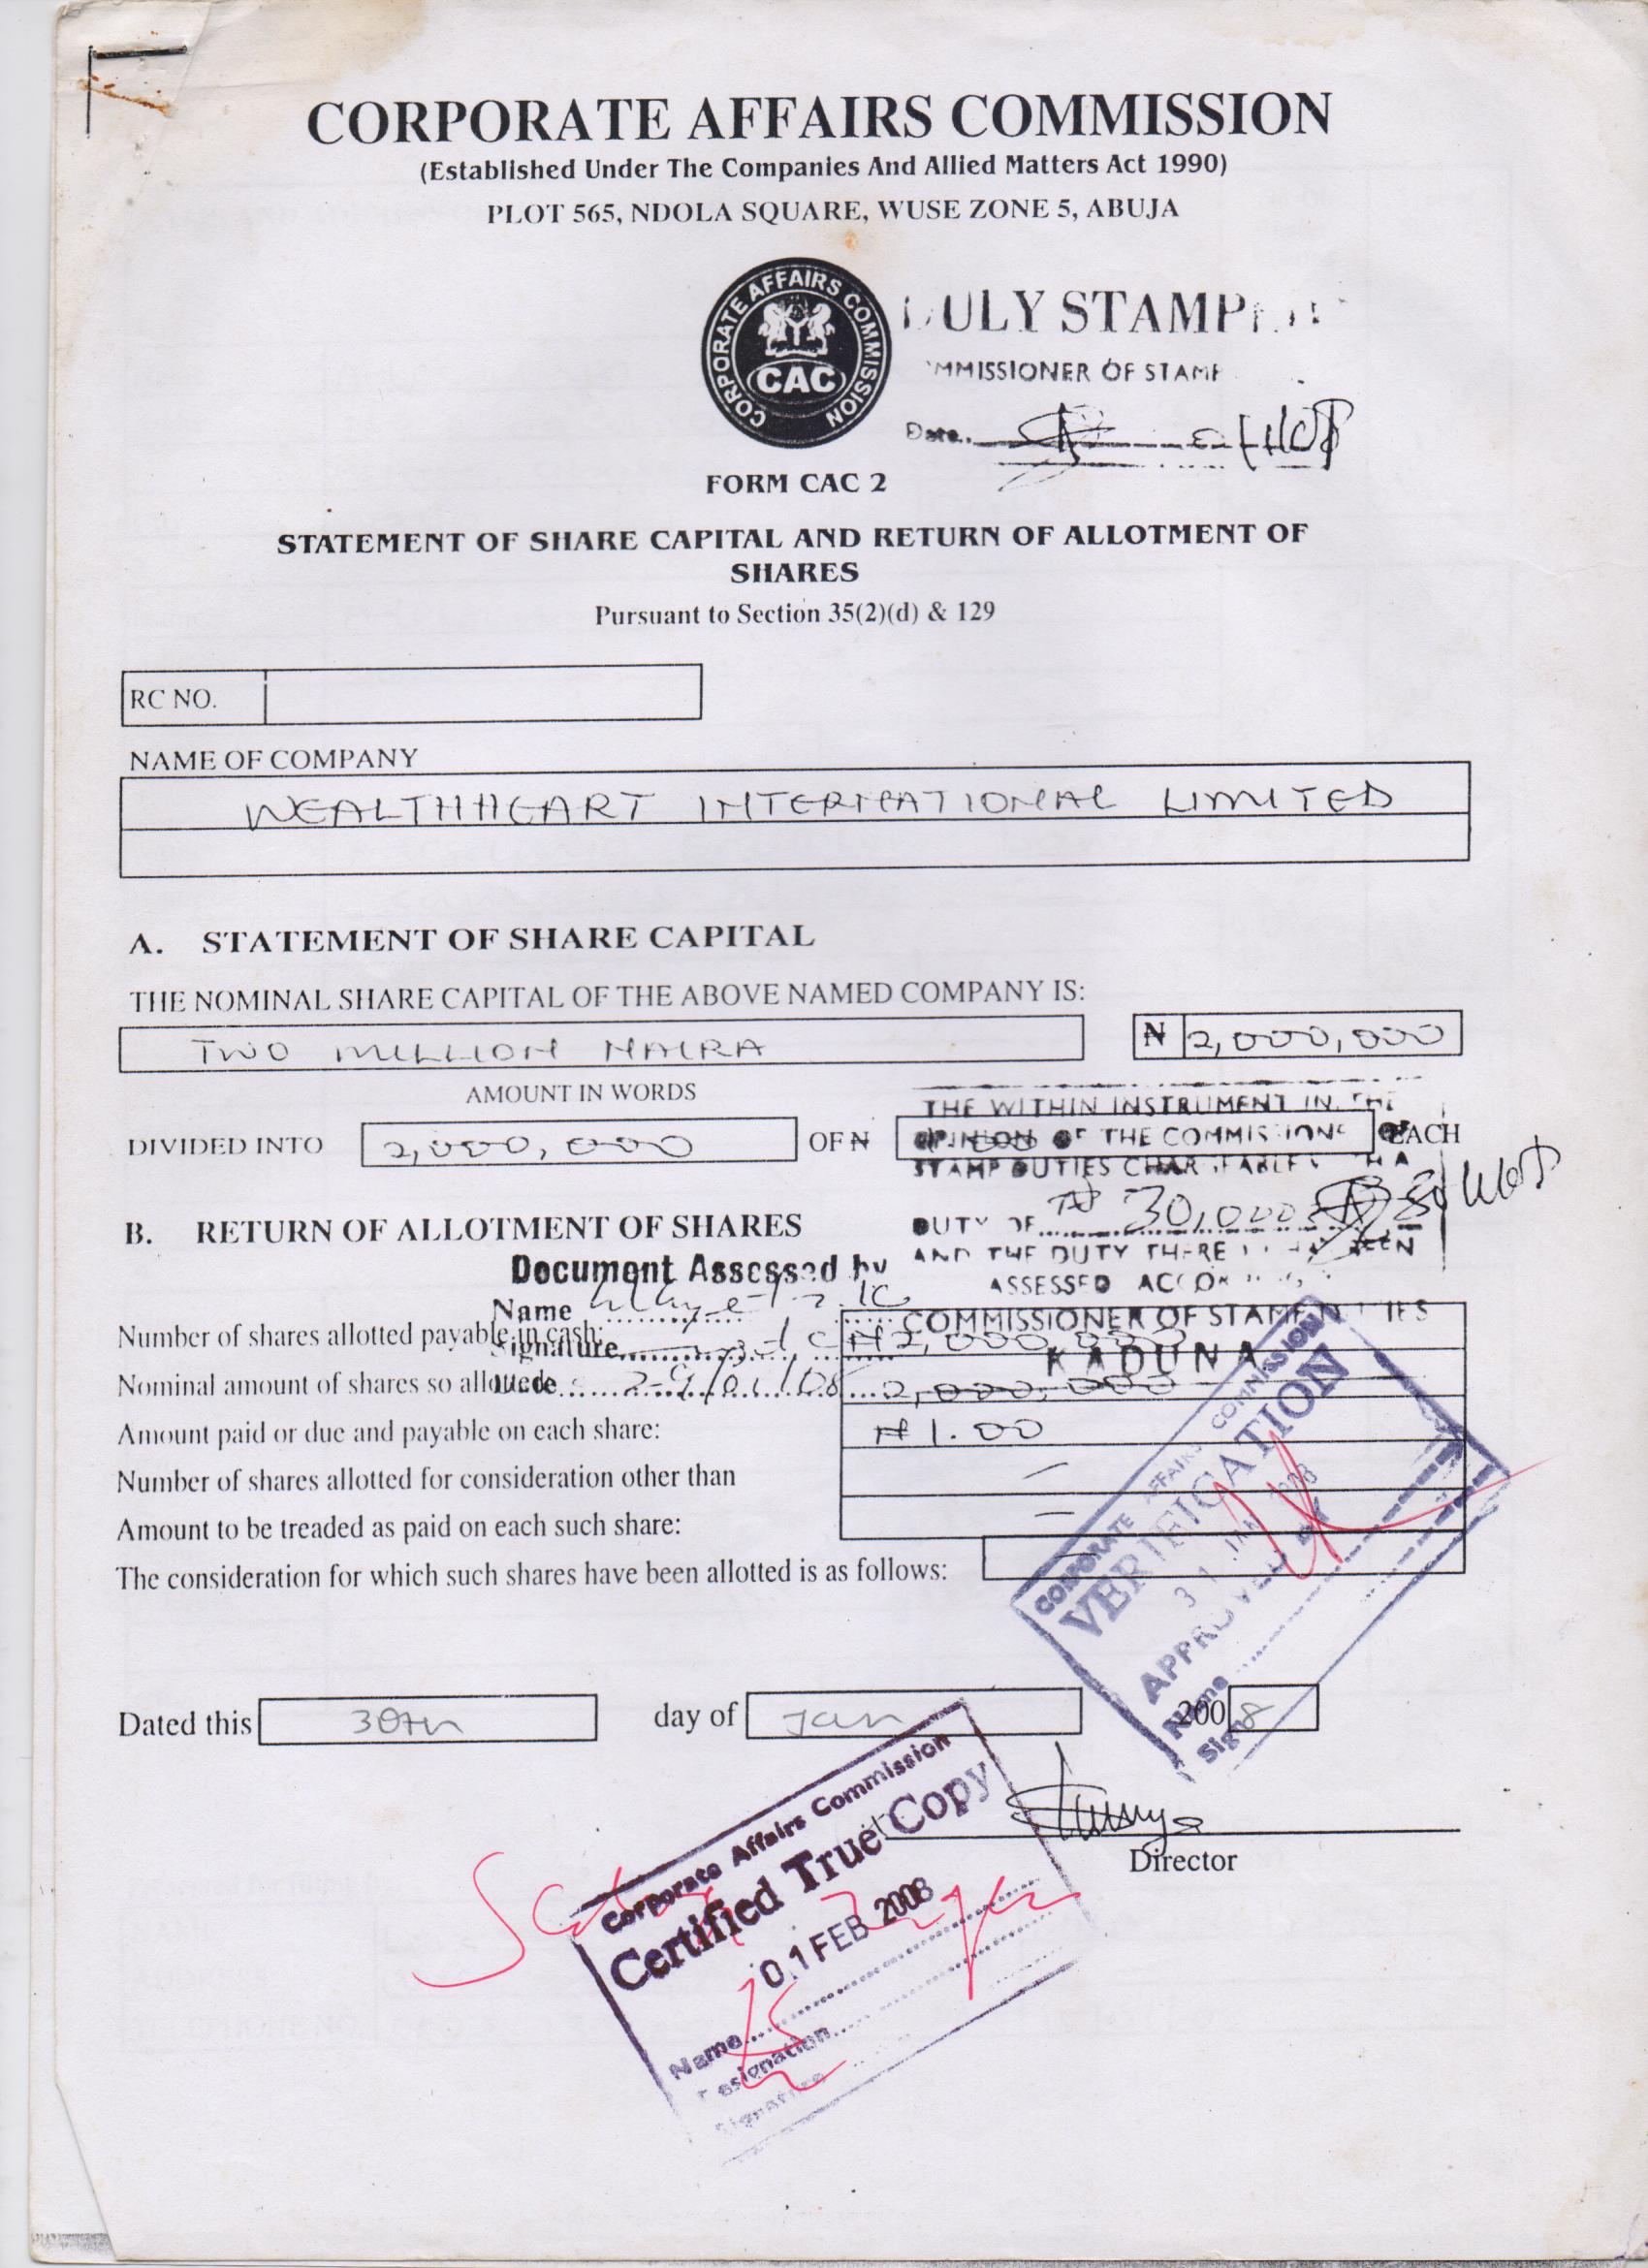 CORPORATE AFFAIRS COMMISSION
(Established Under The Companies And Allied Matters Act 1990)
PLOT 565, NDOLA SQUARE, WUSE ZONE 5, ABUJA
CORPORATE AFFAIRS COMMISSION
CAC
ULY STAMP
MMISSIONER OF STAMP
Date..
FORM CAC 2
STATEMENT OF SHARE CAPITAL AND RETURN OF ALLOTMENT OF
SHARES
Pursuant to Section 35(2)(d) & 129
RC NO.
NAME OF COMPANY
WEALTHHEART INTERNATIONAL LIMITED
A. STATEMENT OF SHARE CAPITAL
THE NOMINAL SHARE CAPITAL OF THE ABOVE NAMED COMPANY IS:
TWO MILLION NAIRA ₦ 2,000,000
AMOUNT IN WORDS
DIVIDED INTO 2,000,000 OF ₦ EACH
THE WITHIN INSTRUMENT IN THE
OPINION OF THE COMMISSIONE OF
STAMP DUTIES CHARGEABLE WITH A
DUTY OF ₦ 30,000
AND THE DUTY THERE BEEN
ASSESSED
COMMISSIONER OF STAMP DUTIES
KADUNA
B. RETURN OF ALLOTMENT OF SHARES
Document Assessed by
Name
Signature
Date 29/01/08
Number of shares allotted payable in cash: ₦2,000,000
Nominal amount of shares so allotted: 2,000,000
Amount paid or due and payable on each share: ₦1.00
Number of shares allotted for consideration other than —
Amount to be treaded as paid on each such share: —
The consideration for which such shares have been allotted is as follows: —
CORPORATE AFFAIRS COMMISSION
VERIFICATION
31 JAN 2008
APPROVED BY
Name
Sign
Dated this 30th day of Jan 2008
Director
Corporate Affairs Commission
Certified True Copy
01 FEB 2008
Name
esignation
Signature